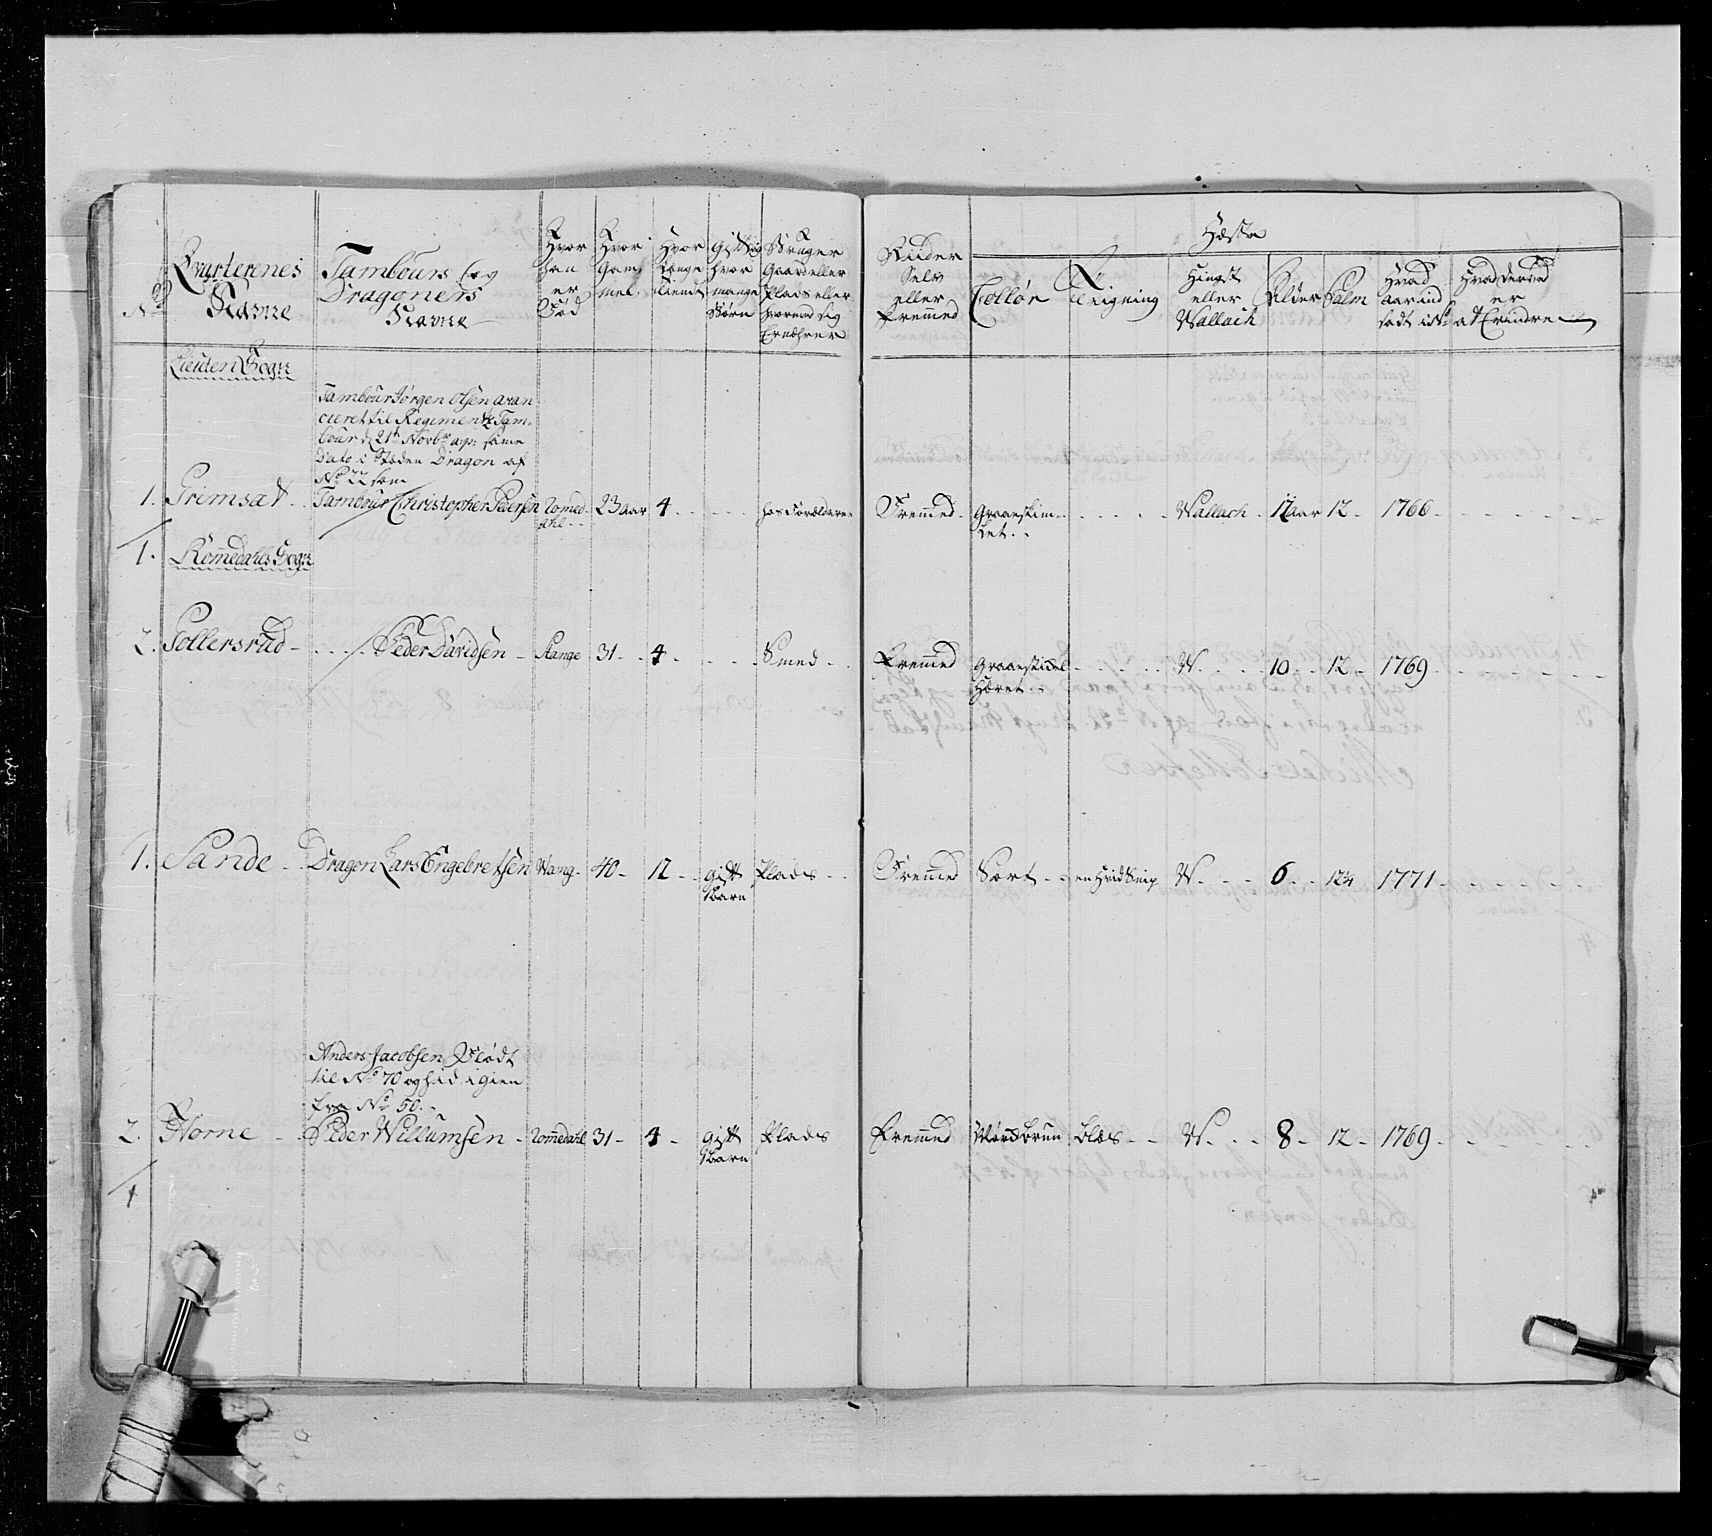 No
Qvarterenes
Nafne
Tambours og
Dragoners
Nafne
Hvor
han
er
Fød
Hvor
Gam
mel
Hvor
Længe
tient
Gift og
hvor
mange
Børn
Bruger
Gaard eller
Plads eller
hvormed sig
Ernæhrer
Riider
Selv
eller
Fremmed
Hæste
Collør
Teigning
Hingst
eller
Wallach
Alder
Palm
Hvad
aar ind
sadt
Hvad derved
er
at Erindre
Lieuten Sogn
Tambour Jørgen Olsen avan
ceret til Regiments Tam
bour d 21 Novbr a.p: samme
Dato i Steden Dragon af
No 22 som
1. Grimsæt Tambour Christopher Pedersen Romed
dahl 23 aar 4 hos Forældrene Fremmed Graaeskim
let Wallach 17 aar 12 1766
1.
Rommedahls Sogn
2. Gollersrud Peder Davidsen Stange 31 4 Smed Fremmed Graaestickel
Håret W. 10 12 1769
1. Sande Dragon Lars Engebretsen Wang 40 12 Gift
1 Barn Plads Fremmed Sort en Hvid Snip W. 6 12¼ 1771
Anders Jacobsen Flødt
til No 70 og hid igien
fra No 50.
2. Horne Peder Willumsen Romedahl 31 4 Gift
1 Barn Plads Fremmed Mørckbrun blæs W. 8 12 1769
1